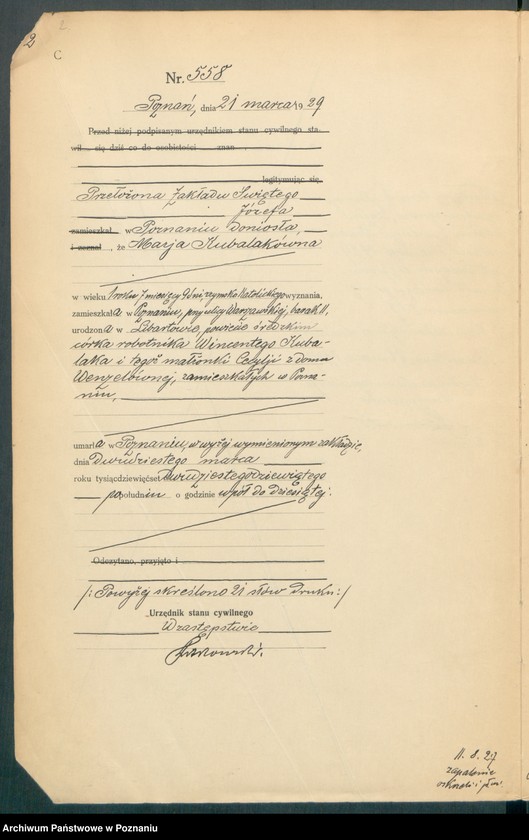 2
2.
C
Nr. 558
Poznań, dnia 21 marca 1929
Przed niżej podpisanym urzędnikiem stanu cywilnego sta-
wił się dziś co do osobistości znan
legitymując się
Przełożona Zakładu Świętego
Józefa
zamieszkał w Poznaniu doniosła,
i zeznał, że Marja Kubalakówna
w wieku 1 roku 7 miesięcy 9 dni rzymsko katolickiego wyznania,
zamieszkała w Poznaniu, przy ulicy Warszawskiej, barak 11,
urodzona w Libartowie, powiecie średzkim
córka robotnika Wincentego Kuba-
laka i tegoż małżonki Cecylji z domu
Wenzelównej, zamieszkałych w Pozna-
niu,
umarła w Poznaniu, w wyżej wymienionym zakładzie,
dnia dwudziestego marca
roku tysiącdziewięćset dwudziestegodziewiątego
po południu o godzinie wpół do dziesiątej.
Odczytano, przyjęto i
/: Powyżej skreślono 21 słów druku :/
Urzędnik stanu cywilnego
W zastępstwie
11. 8. 27
zapalenie
Archiwum Państwowe w Poznaniu